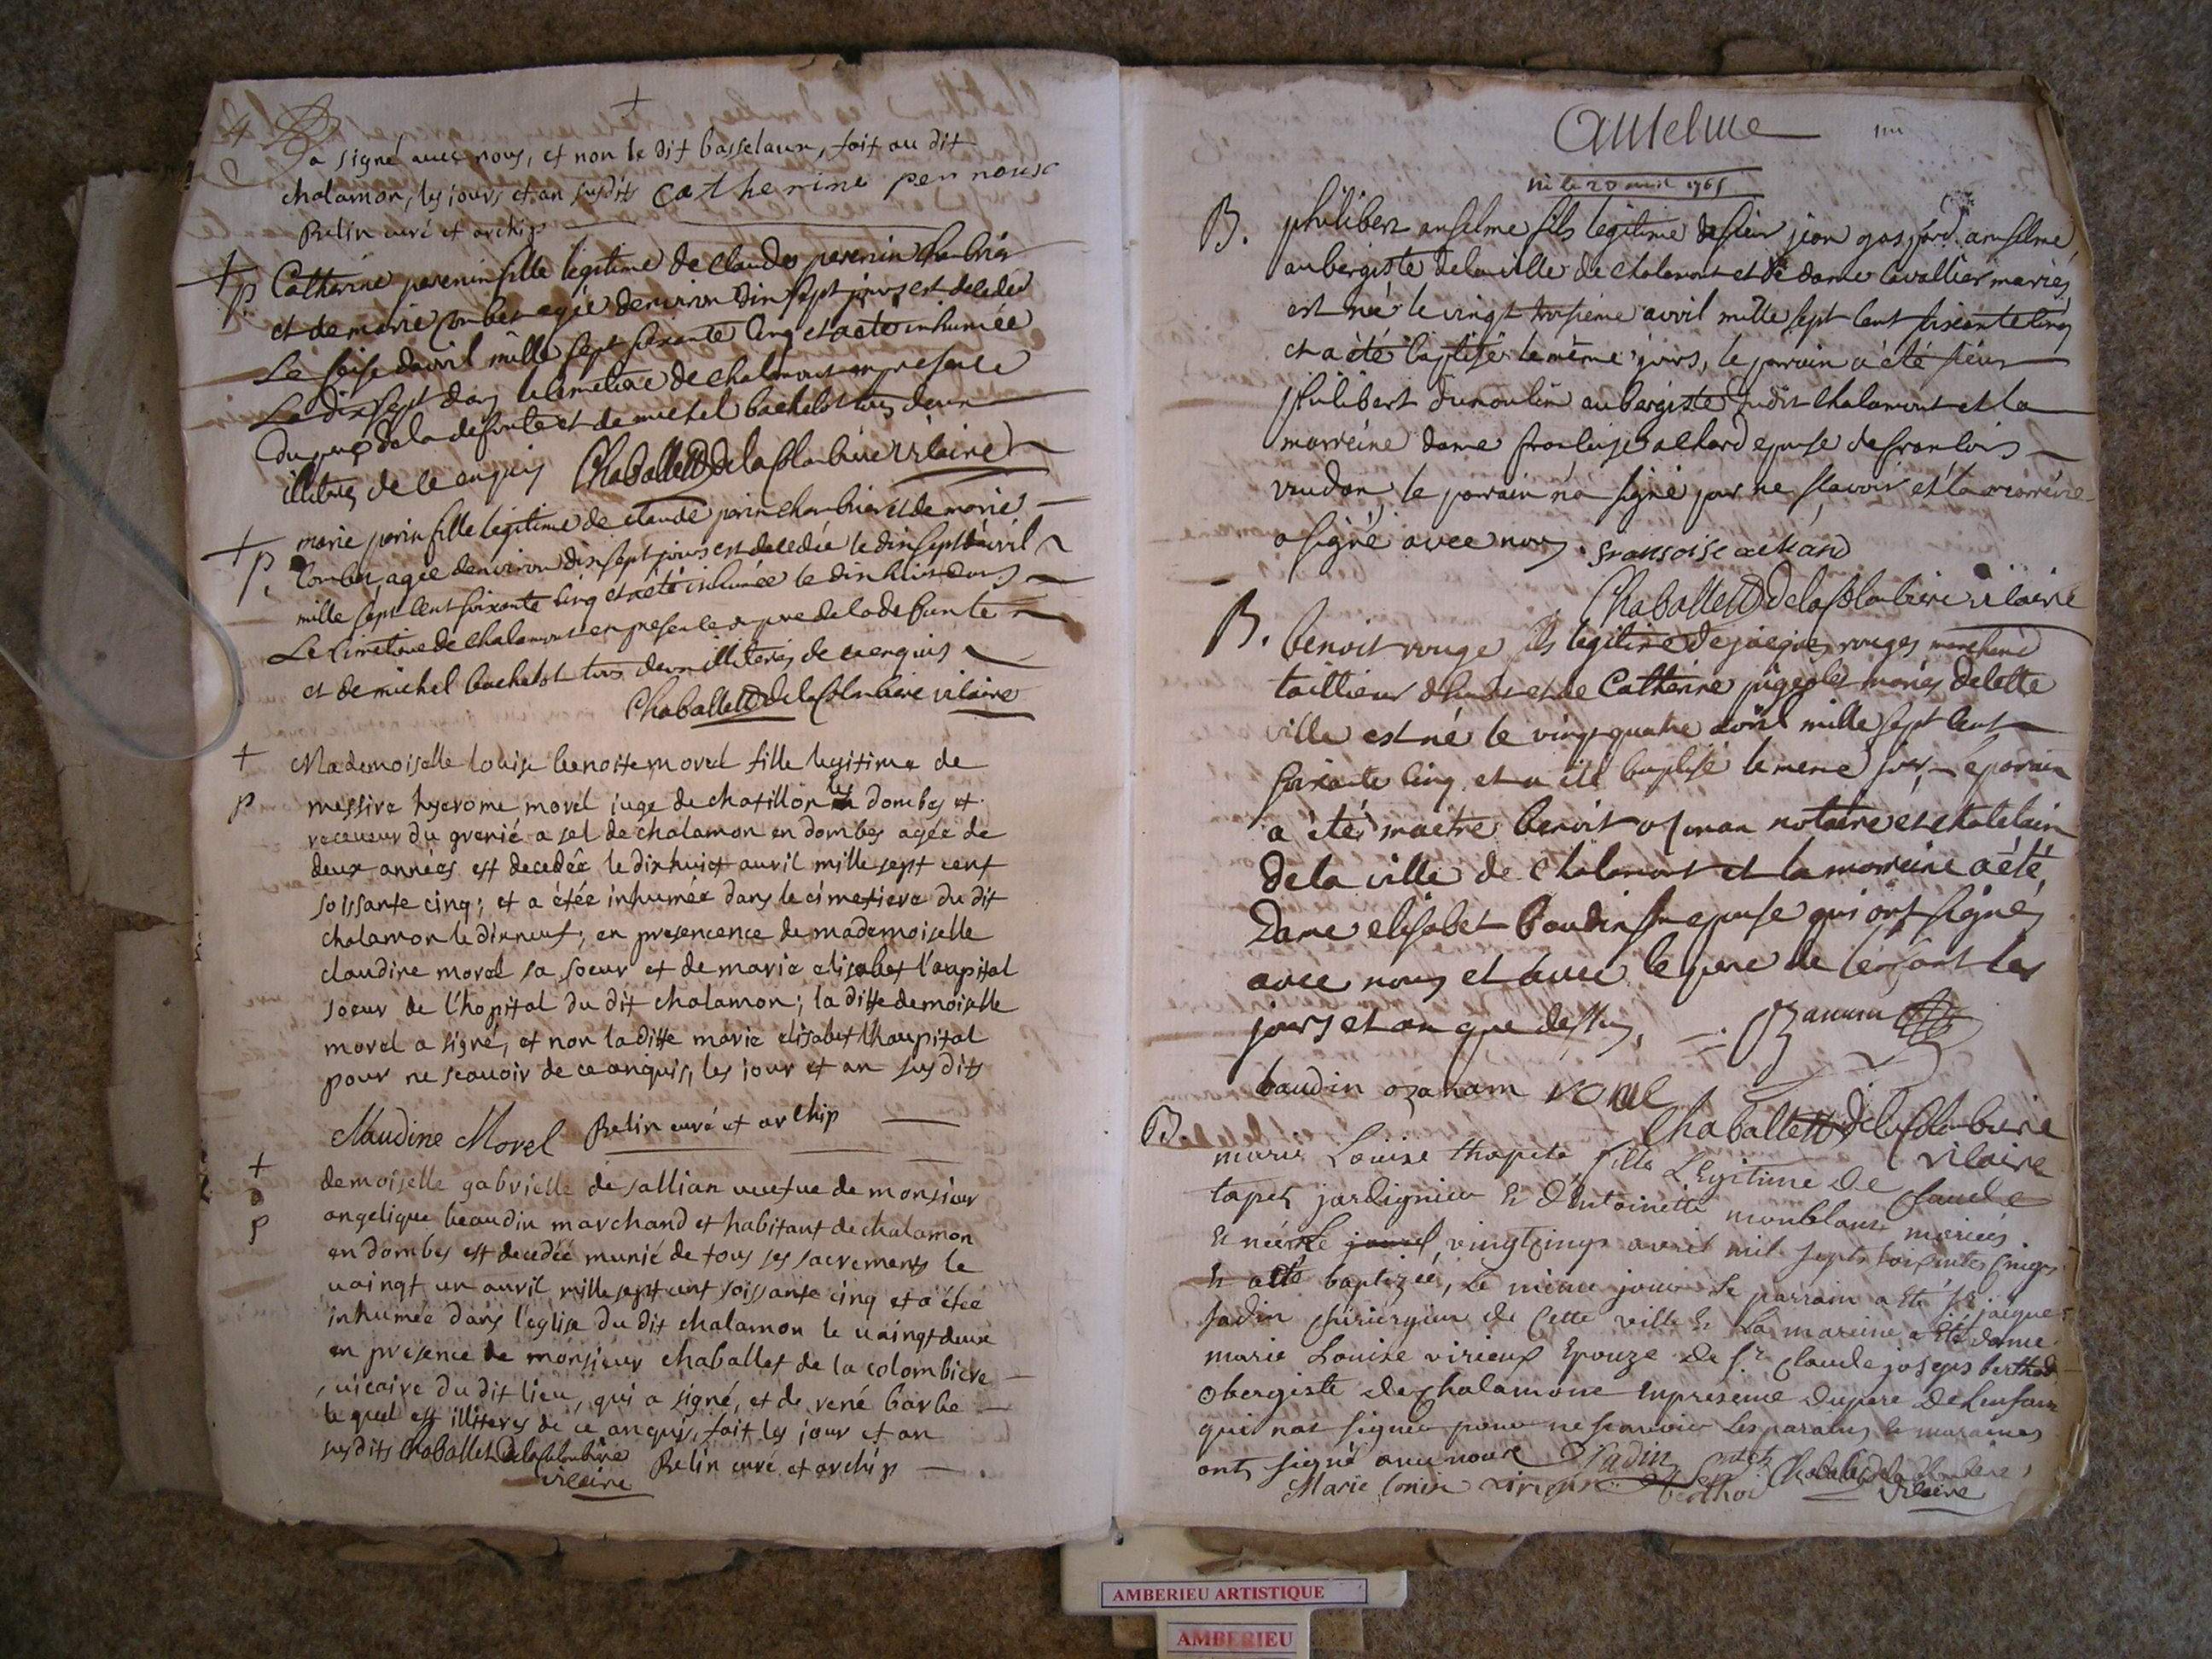 4
a signé avec nous, et non le dit basselaun, fait au dit
chalamon, les jours et an susdits catherine per nousc
Relin curé et archip
+ P. Catherine perenin fille legitime de claude perenin chambrier
et de marie combet agée denviron dixsept jours est decedée
Le saise davril mille sept soixante cinq et a eté inhumée
Le dix sept dans le cimetiere de chalamont en presence
du pere de la defunte et de michel bachelot tous deux
illiterés de ce enquis Chaballet de la Colombiere vicaire
+ P. marie perin fille legitime de claude perin chambrier et de marie
Combet agée denviron dix sept jours est decedée le dix sept avril
mille sept cent soixante cinq et a eté inhumée le dix huit dans
Le Cimetiere de chalamont en presence du pere de la defunte
et de michel bachelot tous deux illiterés de ce enquis
Chaballet de la Colombiere vicaire
+ Mademoiselle louise benoite morel fille legitime de
p messire hyerome morel juge de chatillon les dombes et
receveur du grenié a sel de chalamon en dombes agée de
deux années est decedée le dixhuict avril mille sept cent
soissante cinq; et a étée inhumée dans le cimetiere du dit
chalamon le dixneuf; en presencence de mademoiselle
claudine morel sa soeur et de marie elisabet l'aupital
soeur de l'hopital du dit chalamon; la ditte demoiselle
morel a signé, et non la ditte marie elisabet lhaupital
pour ne scauoir de ce anquis, les jour et an susdits
Claudine Morel Relin curé et archip
+ demoiselle gabrielle de sallian ueufue de monsieur
P angelique beaudin marchand et habitant de chalamon
en dombes est decedée munie de tous ses sacrements le
uaingt un auril mille sept cent soissante cinq et a étée
inhumée dans l'église du dit chalamon le uaingtdeux
en présence de monsieur chaballet de la colombiere
uicaire du dit lieu, qui a signé, et de rené barbe
le quel est illiteres de ce anquis, fait les jour et an
susdits Chaballet de la Colombiere Relin curé et archip
vicaire
anselme
né le 23 avril 1765
B. philibert anselme fils legitime de sieur jean gaspard anselme
aubergiste de la ville de chalamont et de dame cavallier mariés
est née le vingt troisieme avvil mille sept cent soixante cinq
et a été baptisé le même jours, le parain a été sieur
philibert dumoulin aubergiste dudit chalamont et la
marreine dame francoise achard epouse de francois
vaudan, le parrain n'a signé pour ne scavoir et la marreine
a signé avec nous. fransoise achard
Chaballet de la Colombiere vicaire
B. benoit rouge fils legitime de jacques rouges marchand
taillieur dhabits et de Catherine mariés de cette
ville est né le vingt quatre avril mille sept cent
soixante cinq et a été baptisé le meme jour, le parain
a été maitre benoit ozanan notaire et chatelain
de la ville de chalamont et la marreine a été
Dame elisabet baudin son epouse qui ont signés
avec nous et avec le pere de lenfant les
jours et an que dessus.
baudin ozanam rouge
Chaballet de la Colombiere
vicaire
B. marie Louise thapeta fille Legitime de Claude
tapet jardignier & dentoinette monblanc mariés
& née Le vingtcinqs avril mil septs soisente cinqs
& a été baptizée, Le même jour Le parrain a été sr jacques
jadin chirurgien de Cette ville & La mareine a Eté dame
marie Louise virieux Epouze de sr Claude joseps berthod
obergiste de chalamont En presence du pere De Lenfant
qui nat signer pour ne scauoir Les parains & maraines
onts signé avec nous Jadin
Marie louise virieux berthod Chaballet de la Colombiere
vicaire
AMBERIEU ARTISTIQUE
AMBERIEU